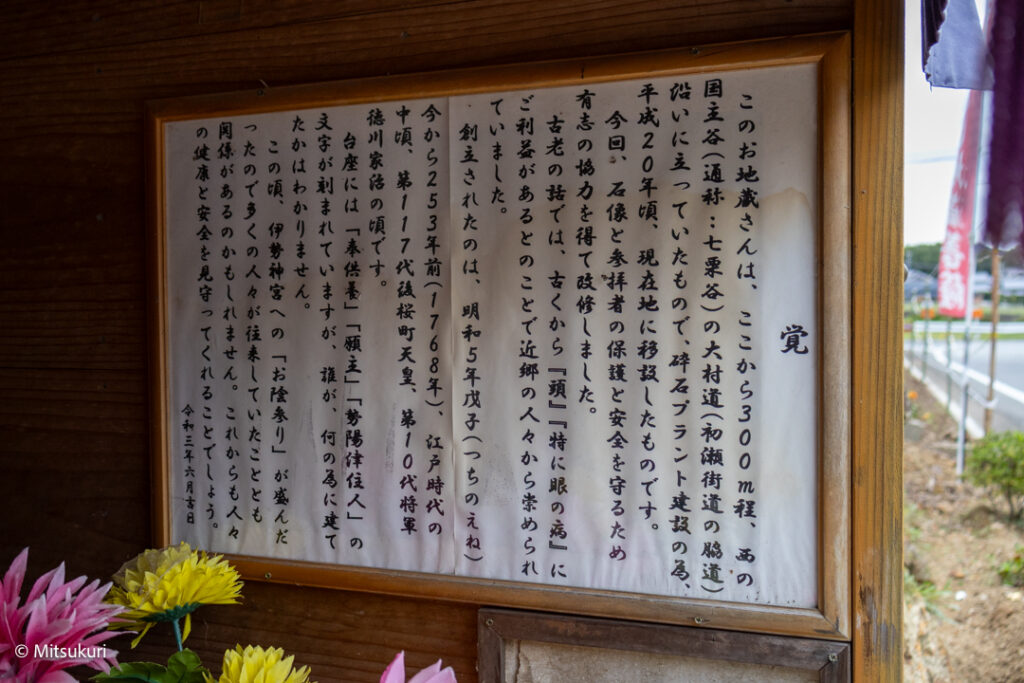 覚
このお地蔵さんは、ここから300m程、西の
国主谷(通称:七栗谷)の大村道(初瀬街道の脇道)
沿いに立っていたもので、砕石プラント建設の為、
平成20年頃、現在地に移設したものです。
今回、石像と参拝者の保護と安全を守るため
有志の協力を得て改修しました。
古老の話では、古くから『頭』『特に眼の病』に
ご利益があるとのことで近郷の人々から崇められ
ていました。
創立されたのは、明和5年戊子(つちのえね)
今から253年前(1768年)、江戸時代の
中頃、第117代後桜町天皇、第10代将軍
徳川家治の頃です。
台座には「奉供養」「願主」「勢陽津住人」の
文字が刻まれていますが、誰が、何の為に建て
たかはわかりません。
この頃、伊勢神宮への「お陰参り」が盛んだ
ったので多くの人々が往来していたこととも
関係があるのかもしれません。これからも人々
の健康と安全を見守ってくれることでしょう。
令和三年六月吉日
© Mitsukuri